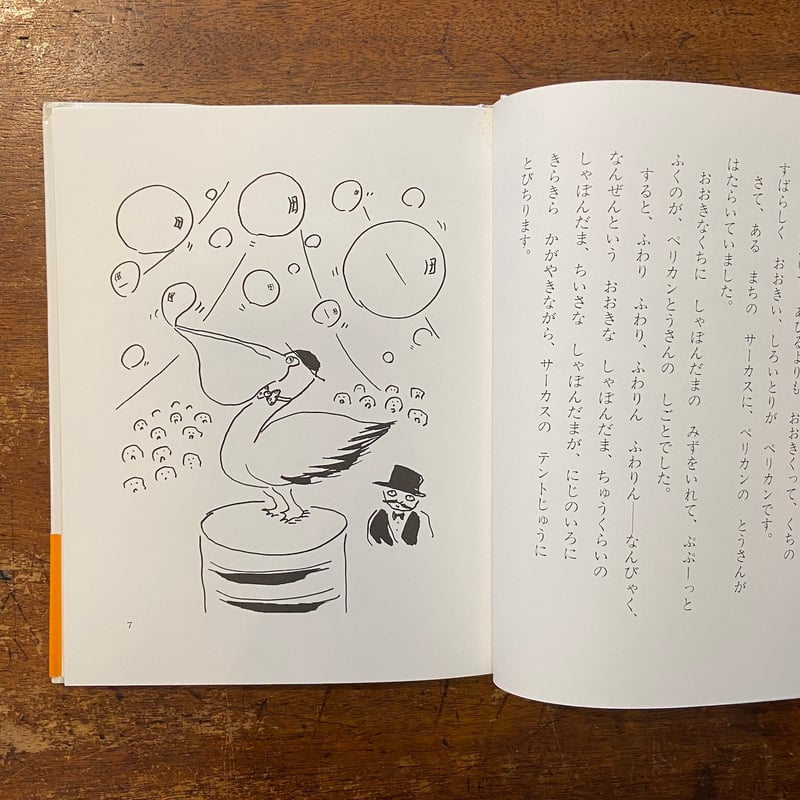 あひるよりも おおきくって、くちの
すばらしく おおきい、しろいとりが ペリカンです。
さて、ある まちの サーカスに、ペリカンの とうさんが
はたらいていました。
おおきなくちに しゃぼんだまの みずをいれて、ぷぷーっと
ふくのが、ペリカンとうさんの しごとでした。
すると、ふわり ふわり、ふわりん ふわりん――なんびゃく、
なんぜんという おおきな しゃぼんだま、ちゅうくらいの
しゃぼんだま、ちいさな しゃぼんだまが、にじのいろに
きらきら かがやきながら、サーカスの テントじゅうに
とびちります。
7